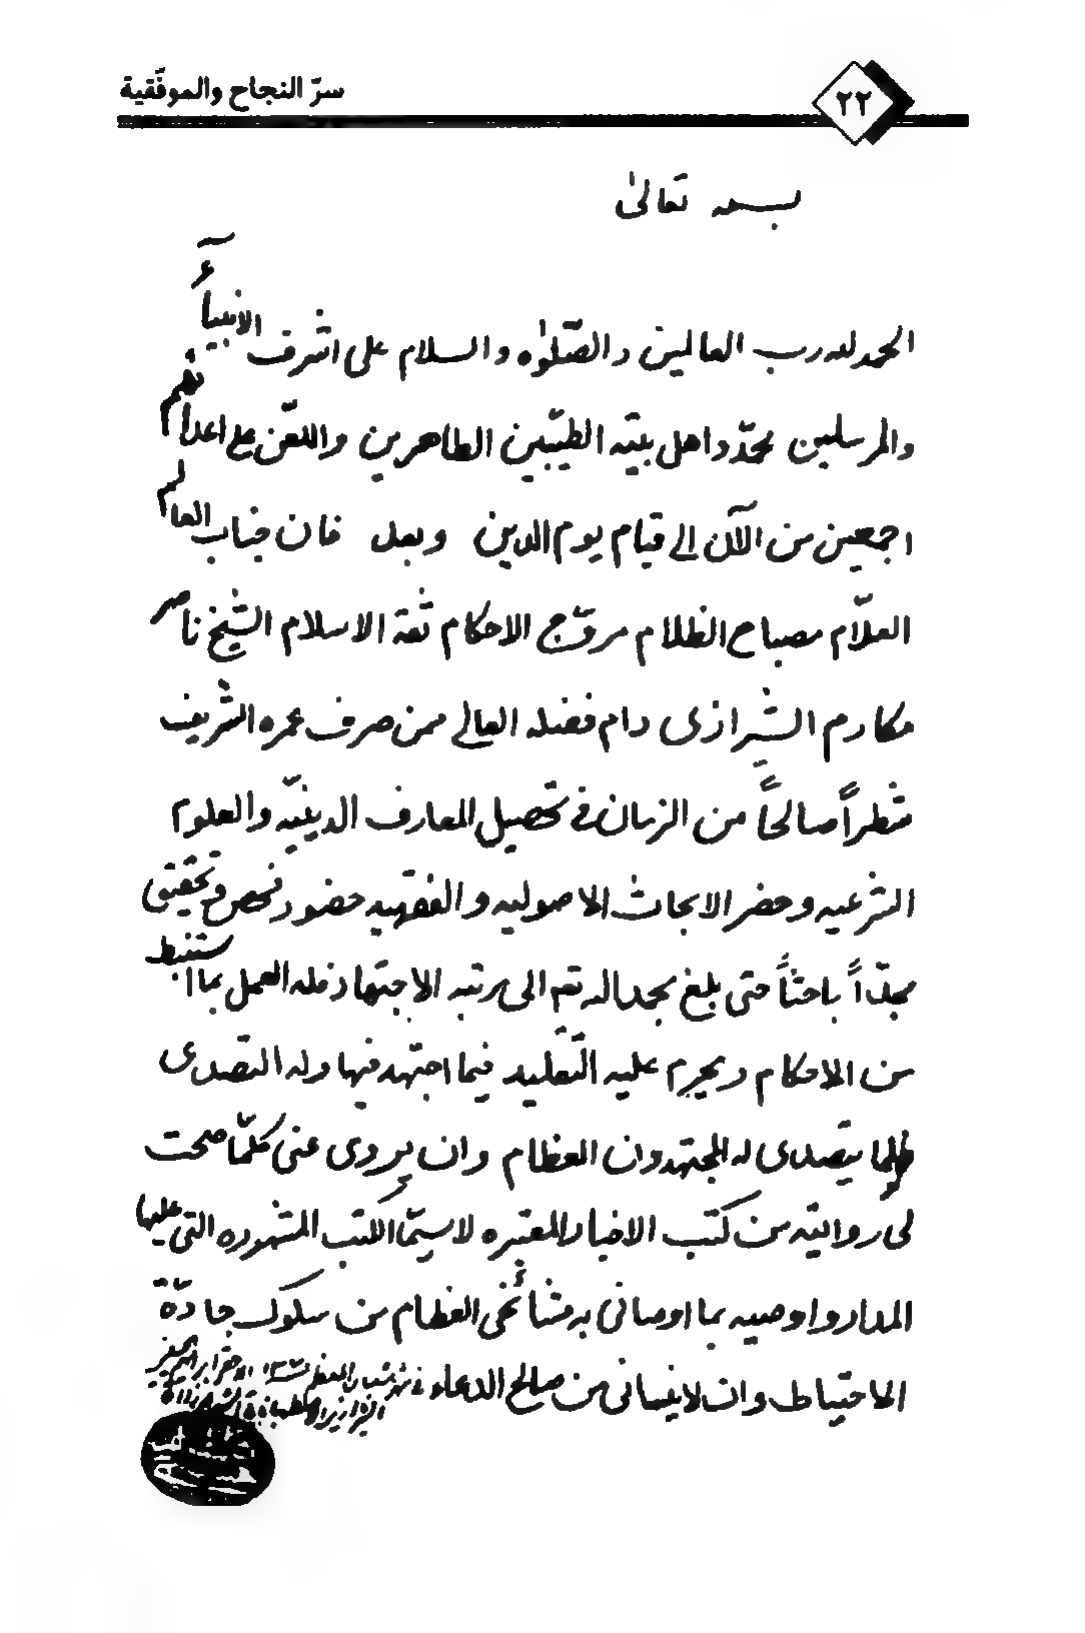 سرّ النجاح والموفّقية
٢٢
بسمه تعالىٰ
الحمد لله رب العالمين والصّلوٰه والسلام على اشرف الانبيآء
والمرسلين محمّد واهل بيته الطيّبين الطاهرين واللعن على اعدائهم
اجمعين من الآن الى قيام يوم الدين وبعد فان جناب العالم
العلّام مصباح الظلام مروّج الاحكام ثقة الاسلام الشيخ ناصر
مكارم الشيرازى دام فضله العالي ممن صرف عمره الشريف
شطراً صالحاً من الزمان في تحصيل المعارف الدينيّه والعلوم
الشرعيه وحضر الابحاث الاصوليه والفقهيه حضور فحص وتحقيق
مجدّاً باحثاً حتى بلغ بحمد الله تعم الى مرتبه الاجتهاد فله العمل بما استنبط
من الاحكام ويحرم عليه التّقليد فيما اجتهد فيها وله التصدى
لما يتصدى له المجتهدون العظام وان يروى عنى كلّما صحت
لى روايته من كتب الاخبار المعتبره لا سيّما الكتب المشهوره التى عليها
المدار واوصيه بما اوصانى به مشائخى العظام من سلوك جادّة
الاحتياط وان لا ينسانى من صالح الدعاء فى شهر شعبان المعظم الاحقر ابراهيم الحسينى